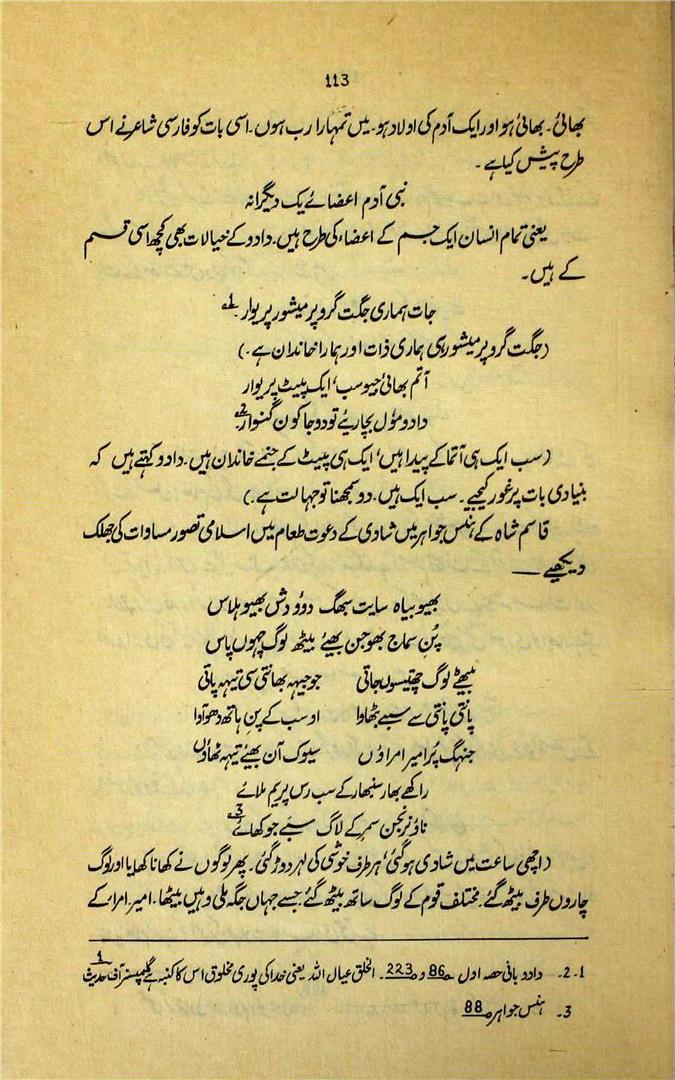 113
بھائی۔ بھائی ہو اور ایک آدم کی اولاد ہو۔ میں تمہارا رب ہوں۔ اسی بات کو فارسی شاعر نے اس
طرح پیش کیا ہے۔
نبی آدم اعضائے یک دیگرانہ
یعنی تمام انسان ایک جسم کے اعضاء کی طرح ہیں۔ دادو کے خیالات بھی کچھ اسی قسم
کے ہیں۔
جات ہماری جگت گرو پرمیشور پریوار۔ 1
(جگت گرو پرمیشور ہی ہماری ذات اور ہمارا خاندان ہے۔)
آتم بھائی جیو سب، ایک پیٹ پریوار
دادو مؤل بچاریئے تو دوجا کون گنوار 2
(سب ایک ہی آتما کے پیدا ہیں، ایک ہی پیٹ کے جنمے خاندان ہیں۔ دادو کہتے ہیں کہ
بنیادی بات پر غور کیجیے۔ سب ایک ہیں۔ دو سمجھنا تو جہالت ہے۔)
قاسم شاہ کے ہنس جواہر میں شادی کے دعوت طعام میں اسلامی تصور مساوات کی جھلک
دیکھیے —
بھیو بیاہ سایت سبھگ دوؤ دش بھیو ہلاس
پُنِ سماج بھوجن بھیئ بیٹھ لوگ چہوں پاس
بیٹھے لوگ چھتیسوں جاتی جو جیہہ بھانتی سی تیہہ پاتی
پانتی پانتی سے سبے بٹھاوا او سب کے پن ہاتھ دھوآوا
جنہگ پُر امیر امراؤں سیوک آن بھیئے تیہہ ٹھاؤں
راکھے بھار سنبھار کے سب رس پریم ملائے
ناؤ نرنجن سمر کے لاگ سَبے جو کھائے 3
(اچھی ساعت میں شادی ہوگئی، ہر طرف خوشی کی لہر دوڑ گئی۔ پھر لوگوں نے کھانا کھایا اور لوگ
چاروں طرف بیٹھ گئے۔ مختلف قوم کے لوگ ساتھ بیٹھ گئے۔ جسے جہاں جگہ ملی وہیں بیٹھا۔ امیر امراء کے
1۔2۔ دادو بانی حصہ اول ص86 و ص223۔ الخلق عیال اللہ یعنی خدا کی پوری مخلوق اس کا کنبہ ہے گلمپسز آف حدیث 1
3۔ ہنس جواہر ص88